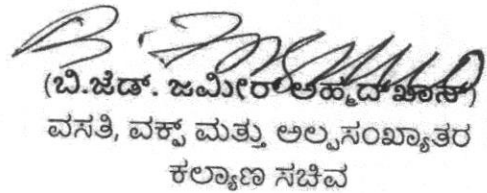 (ಬಿ.ಜೆಡ್. ಜಮೀರ್ ಅಹ್ಮದ್ ಖಾನ್)
ವಸತಿ, ವಕ್ಫ್ ಮತ್ತು ಅಲ್ಪಸಂಖ್ಯಾತರ
ಕಲ್ಯಾಣ ಸಚಿವ